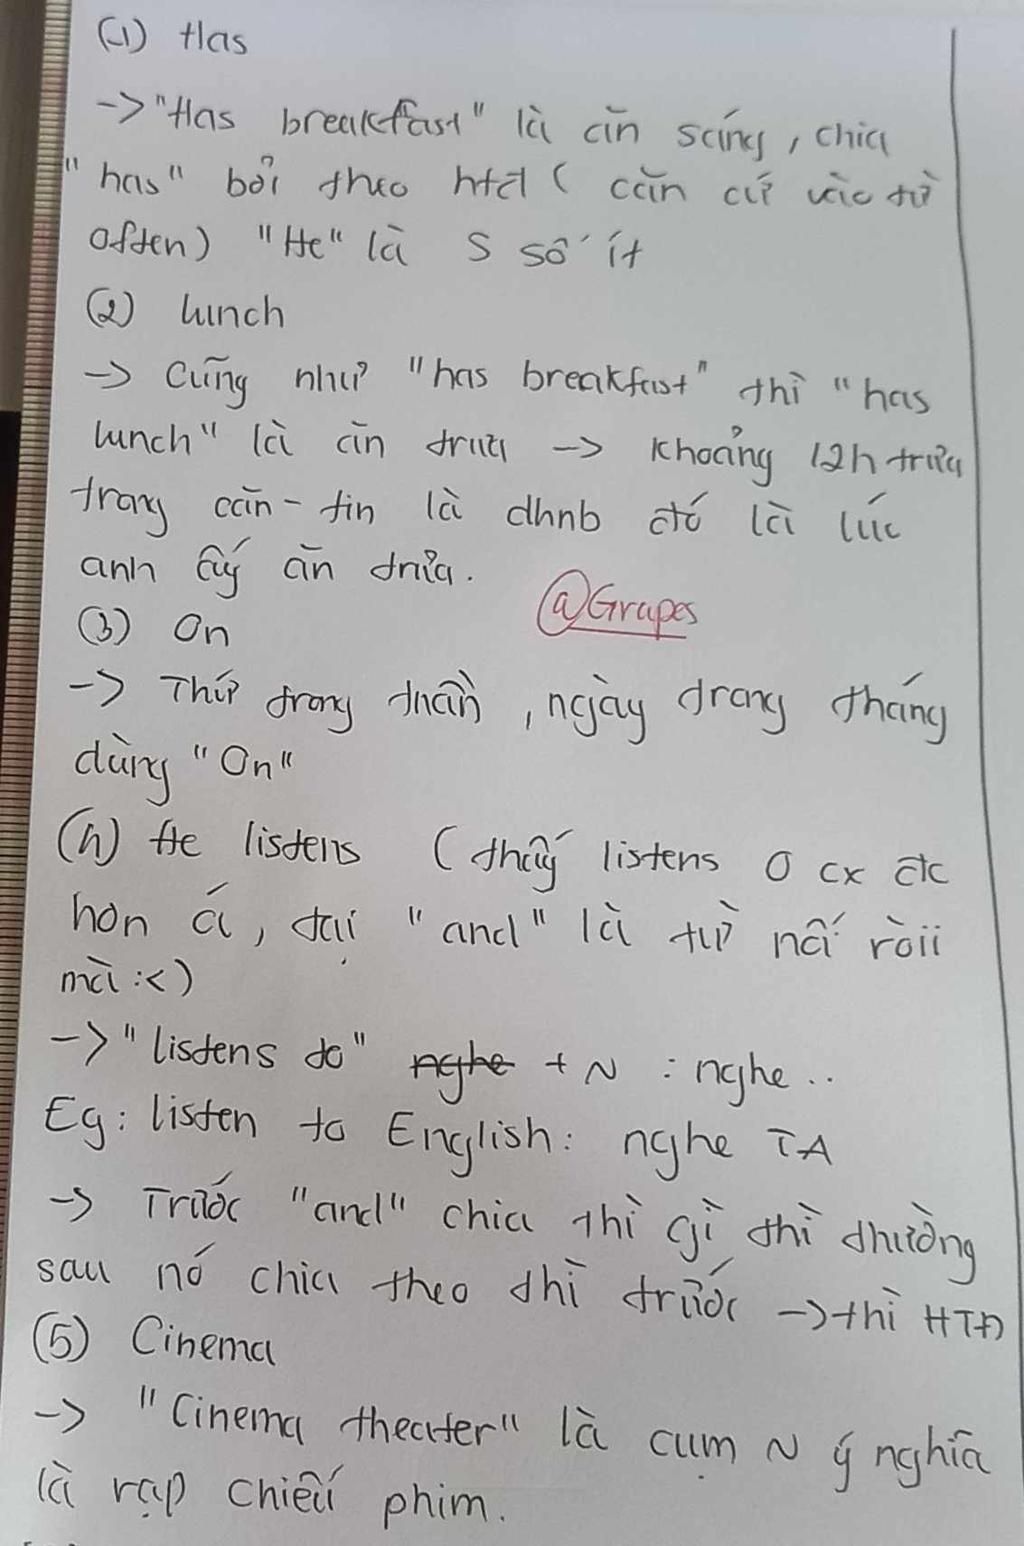 (1) Has
->"Has breakfast" là ăn sáng, chia
"has" bởi theo htđ ( căn cứ vào từ
often) "He" là S số ít
(2) lunch
-> Cũng như "has breakfast" thì "has
lunch" là ăn trưa -> khoảng 12h trưa
trong căn-tin là dhnb đó là lúc
anh ấy ăn trưa.
@Grapes
(3) On
-> Thứ trong tuần, ngày trong tháng
dùng "On"
(4) He listens ( thấy listens 0 cx đc
hơn á, tại "and" là từ nối ròii
mà :<)
->"listens to" nghe + N : nghe..
Eg: listen to English: nghe TA
-> Trước "and" chia thì gì thì thường
sau nó chia theo thì trước ->thì HTĐ
(5) Cinema
-> "Cinema theater" là cụm N ý nghĩa
là rạp chiếu phim.